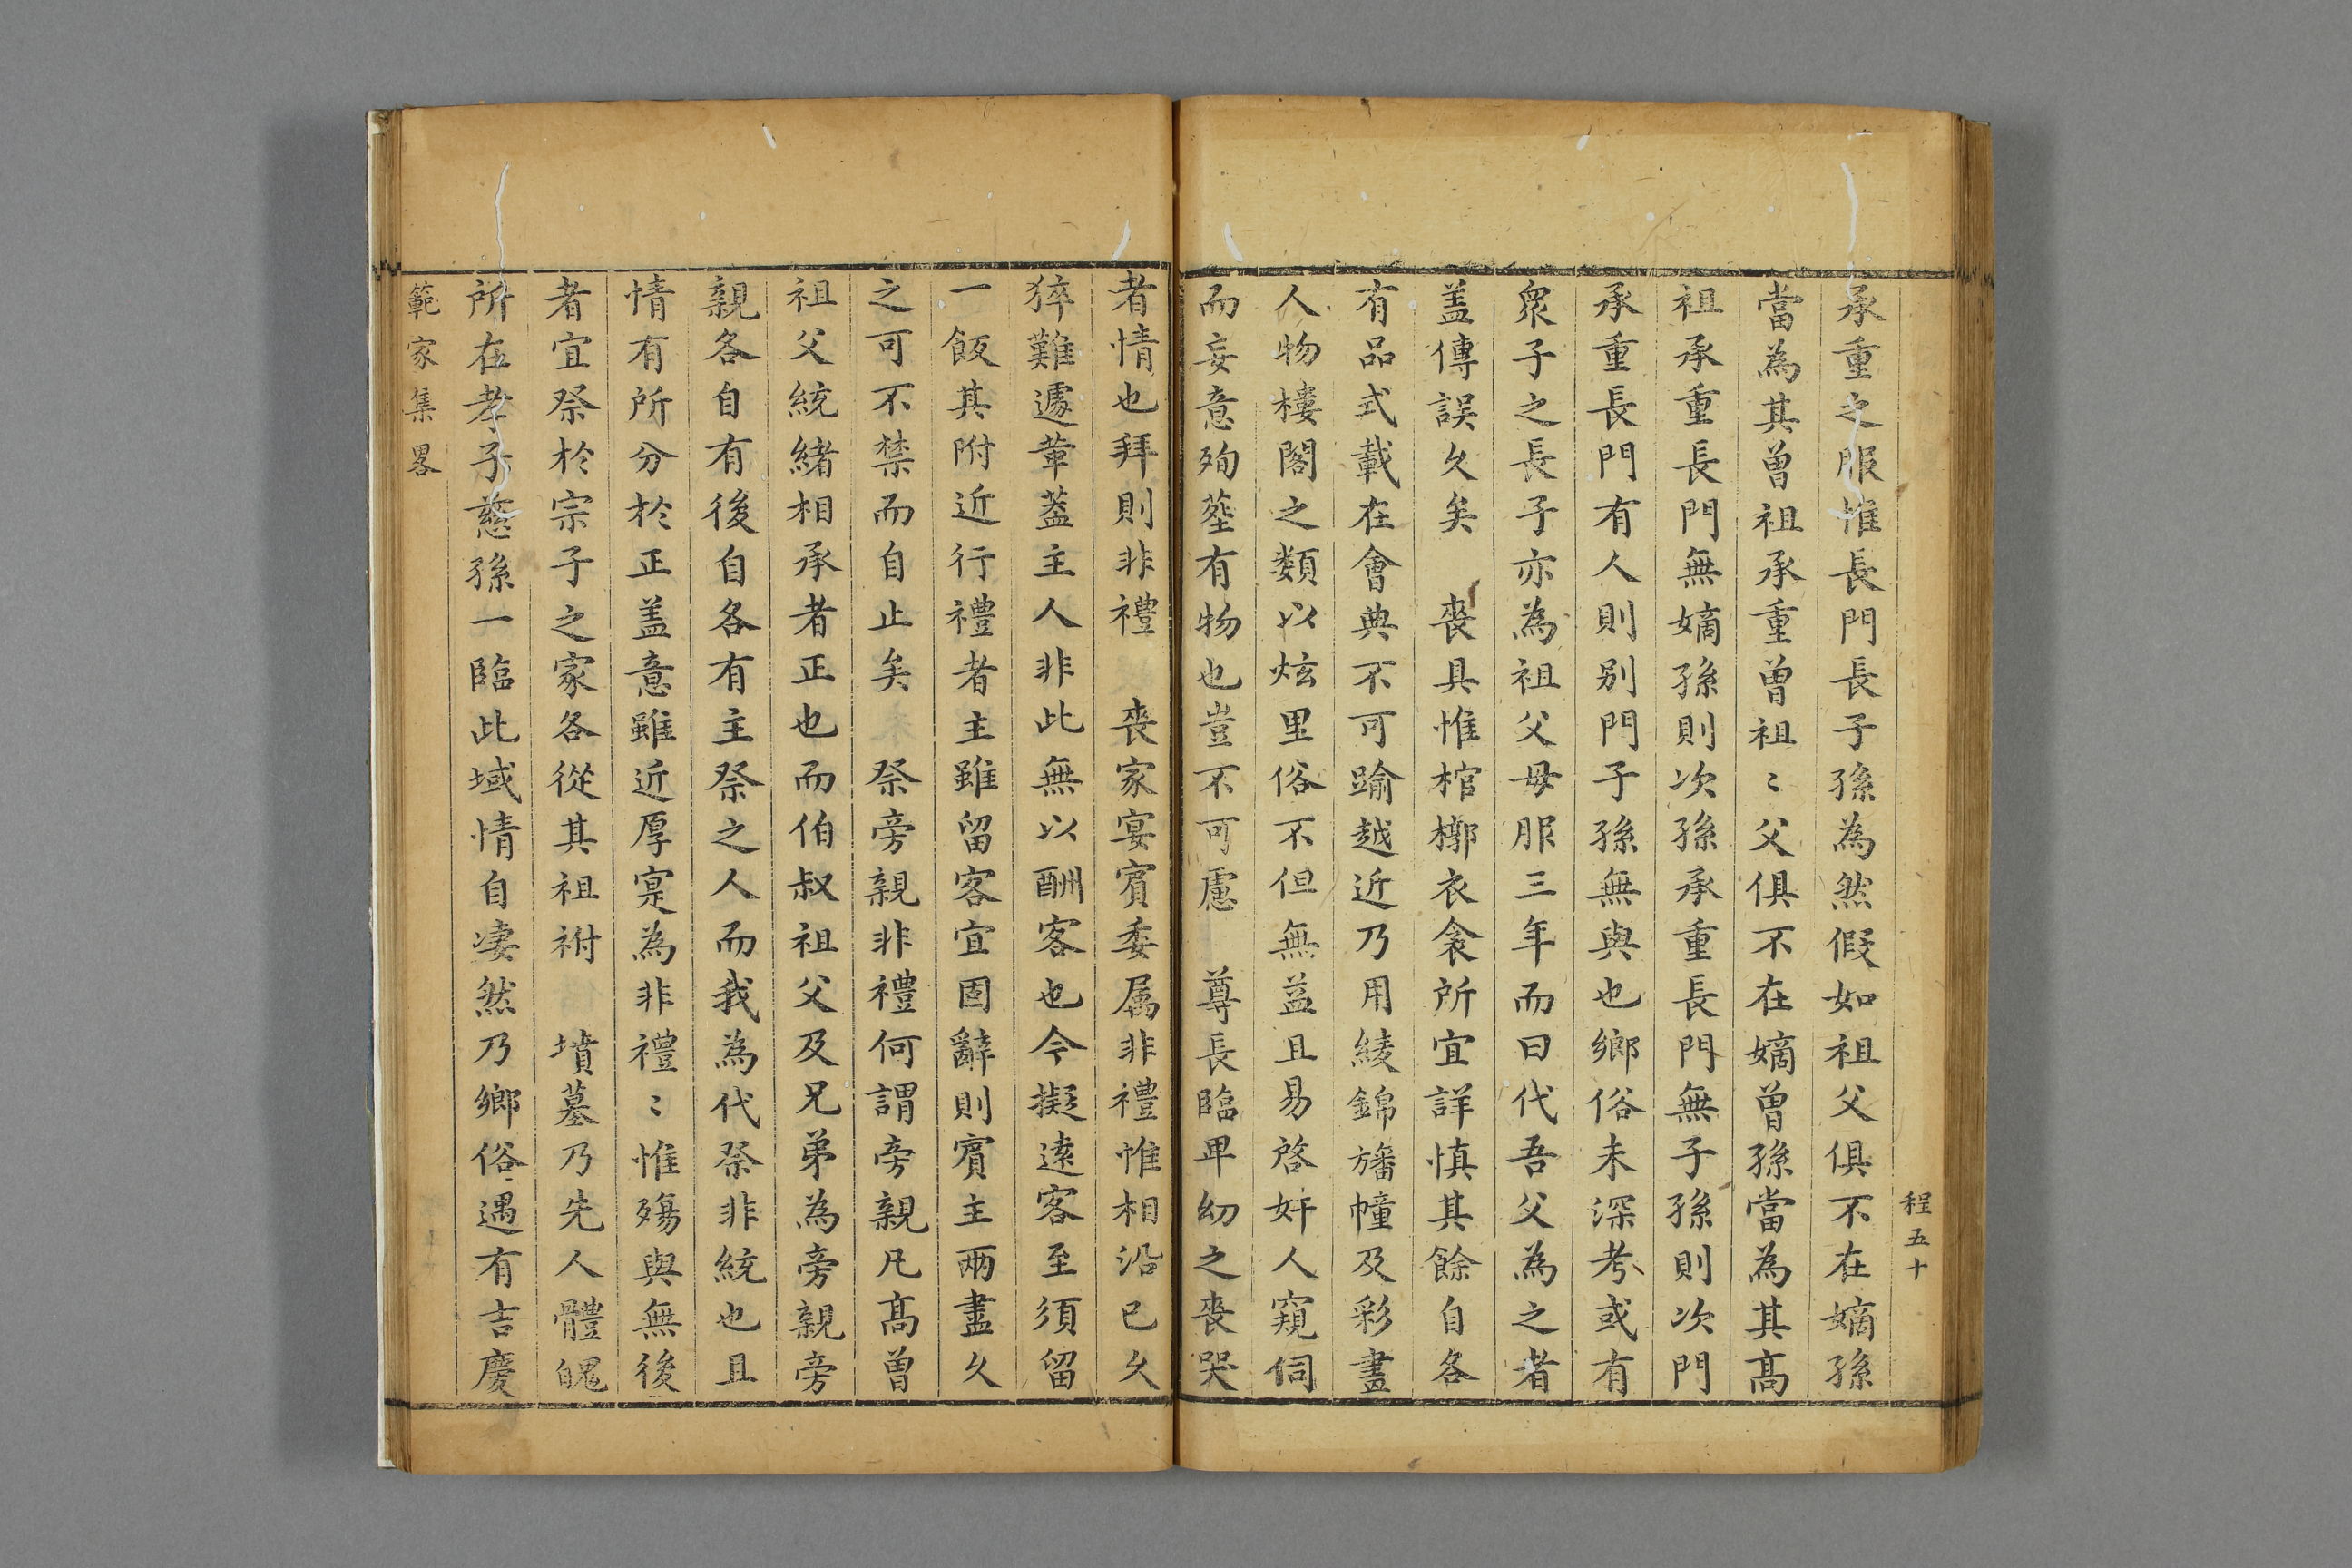 承重之服惟長門長子孫為然假如祖父俱不在嫡孫
當為其曾祖承重曾祖〻父俱不在嫡曾孫當為其髙
祖承重長門無嫡孫則次孫承重長門無子孫則次門
承重長門有人則别門子孫無與也鄉俗未深考或有
衆子之長子亦為祖父母服三年而曰代吾父為之者
盖傳誤久矣　喪具惟棺槨衣衾所宜詳慎其餘自各
有品式載在會典不可踰越近乃用綾錦旛幢及彩畫
人物樓閣之類以炫里俗不但無益且易啓奸人窺伺
而妄意殉塟有物也豈不可慮　尊長臨卑幼之喪哭
者情也拜則非禮　喪家宴賓委属非禮惟相沿已久
猝難遽革蓋主人非此無以酬客也今擬遠客至須留
一飯其附近行禮者主雖留客宜固辭則賓主兩盡久
之可不禁而自止矣　祭旁親非禮何謂旁親凡髙曾
祖父統緒相承者正也而伯叔祖父及兄弟為旁親旁
親各自有後自各有主祭之人而我為代祭非統也且
情有所分於正盖意雖近厚寔為非禮〻惟殤與無後
者宜祭於宗子之家各從其祖祔　墳墓乃先人體魄
所在孝子慈孫一臨此域情自凄然乃鄉俗遇有吉慶
範家集畧
程五十